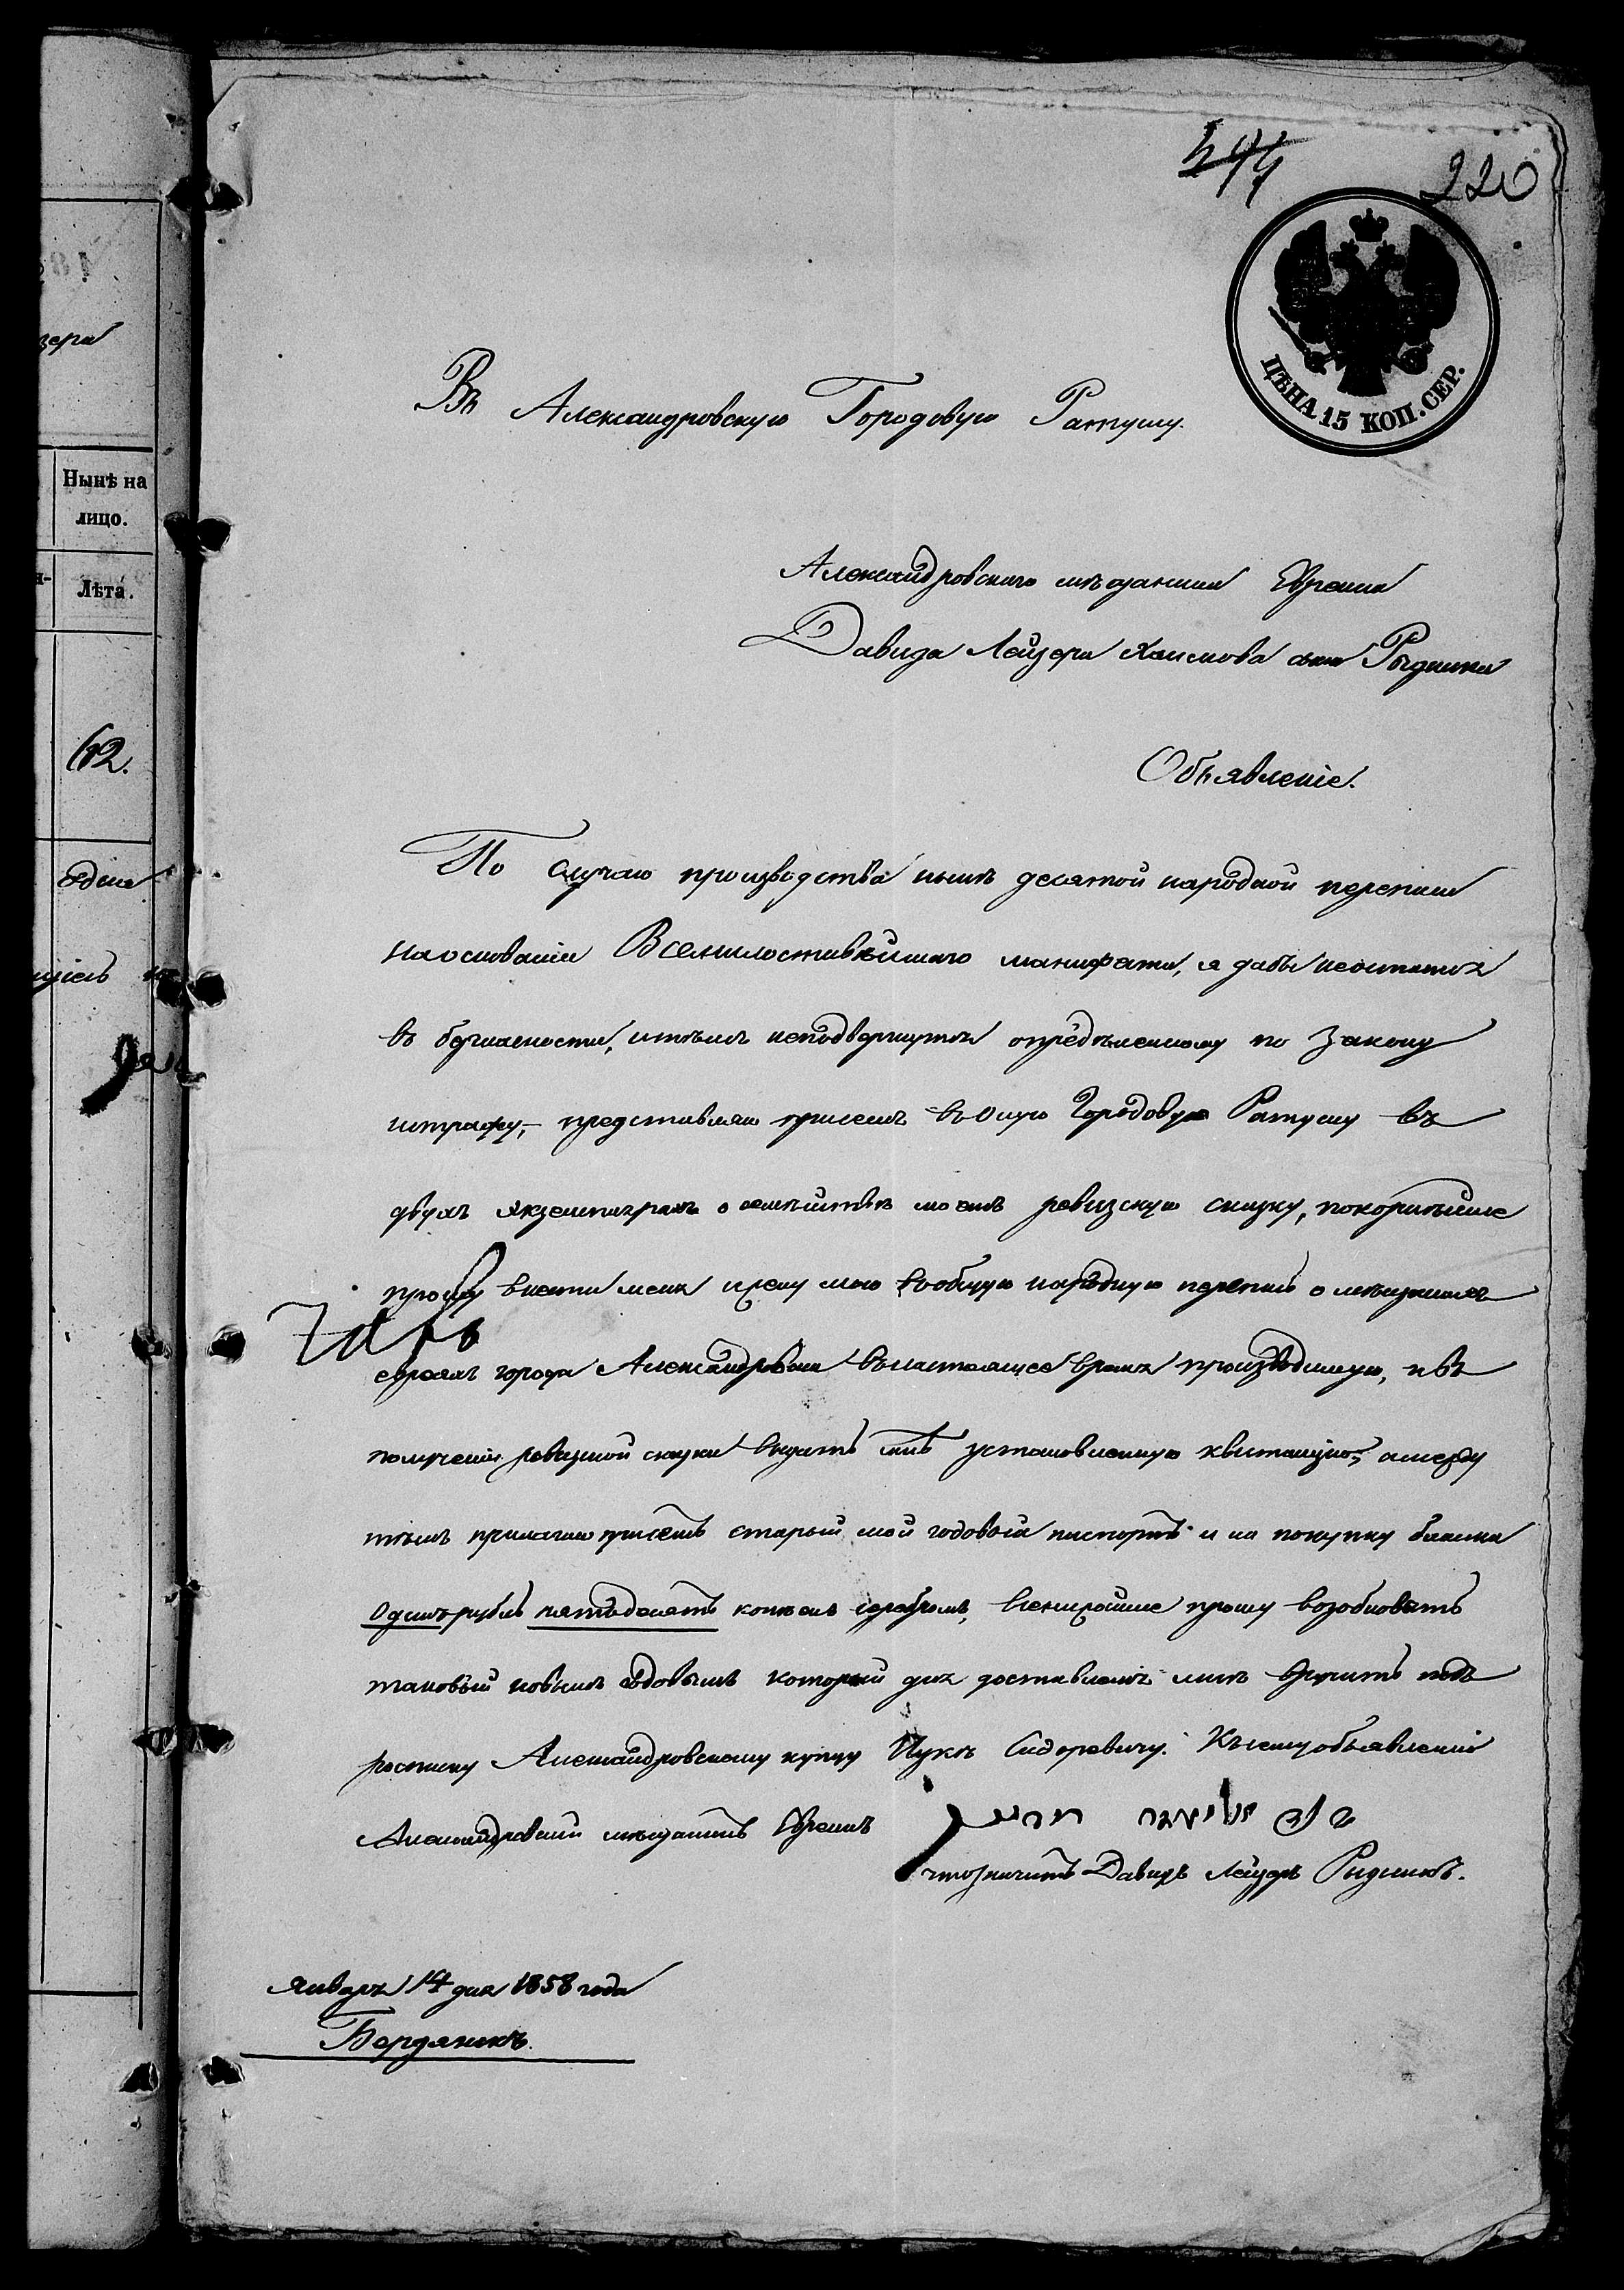 220
ЦѢНА 15 КОП. СЕР.
Въ Александровскую Городовую Ратушу.
Александровскаго мѣщанина Евреина
Давида Лейзера Хаимова сына Рыдника
Объявленіе.
По случаю производства нынѣ десятой народной переписи
на основаніи Всемилостивѣйшаго манифеста, я дабы неостатся
въ безгласности, итѣмъ неподвергнутся опредѣленному по закону
штрафу, представляю присемъ въ оную Городовую Ратушу въ
двухъ экземплярахъ о семѣйствѣ моемъ ревизскую сказку, покорнѣйше
прошу внести меня исемю мою вобщую народную перепись о мѣщанахъ
евреяхъ города Александровска внастоящее время производимую, ивъ
полученіи ревизкой сказки выдать мнѣ установленную квитанцію, амежду
тѣмъ прилагаю присемъ старый мой годовой паспортъ и на покупку бланка
Одинъ рубль пятьдесятъ копѣекъ серебромъ, всенижайше прошу возобновить
таковый новымъ годовымъ который для доставленія мнѣ вручить подъ
росписку Александровскому купцу Сидоревичу. Къ сему объявленію
Александровскій мѣщанинъ Евреинъ
что значитъ Давидъ Лейзеръ Рыдникъ.
Января 14 дня 1858 года
Бердянскъ.
Нынѣ на
лицо.
Лѣта.
62.